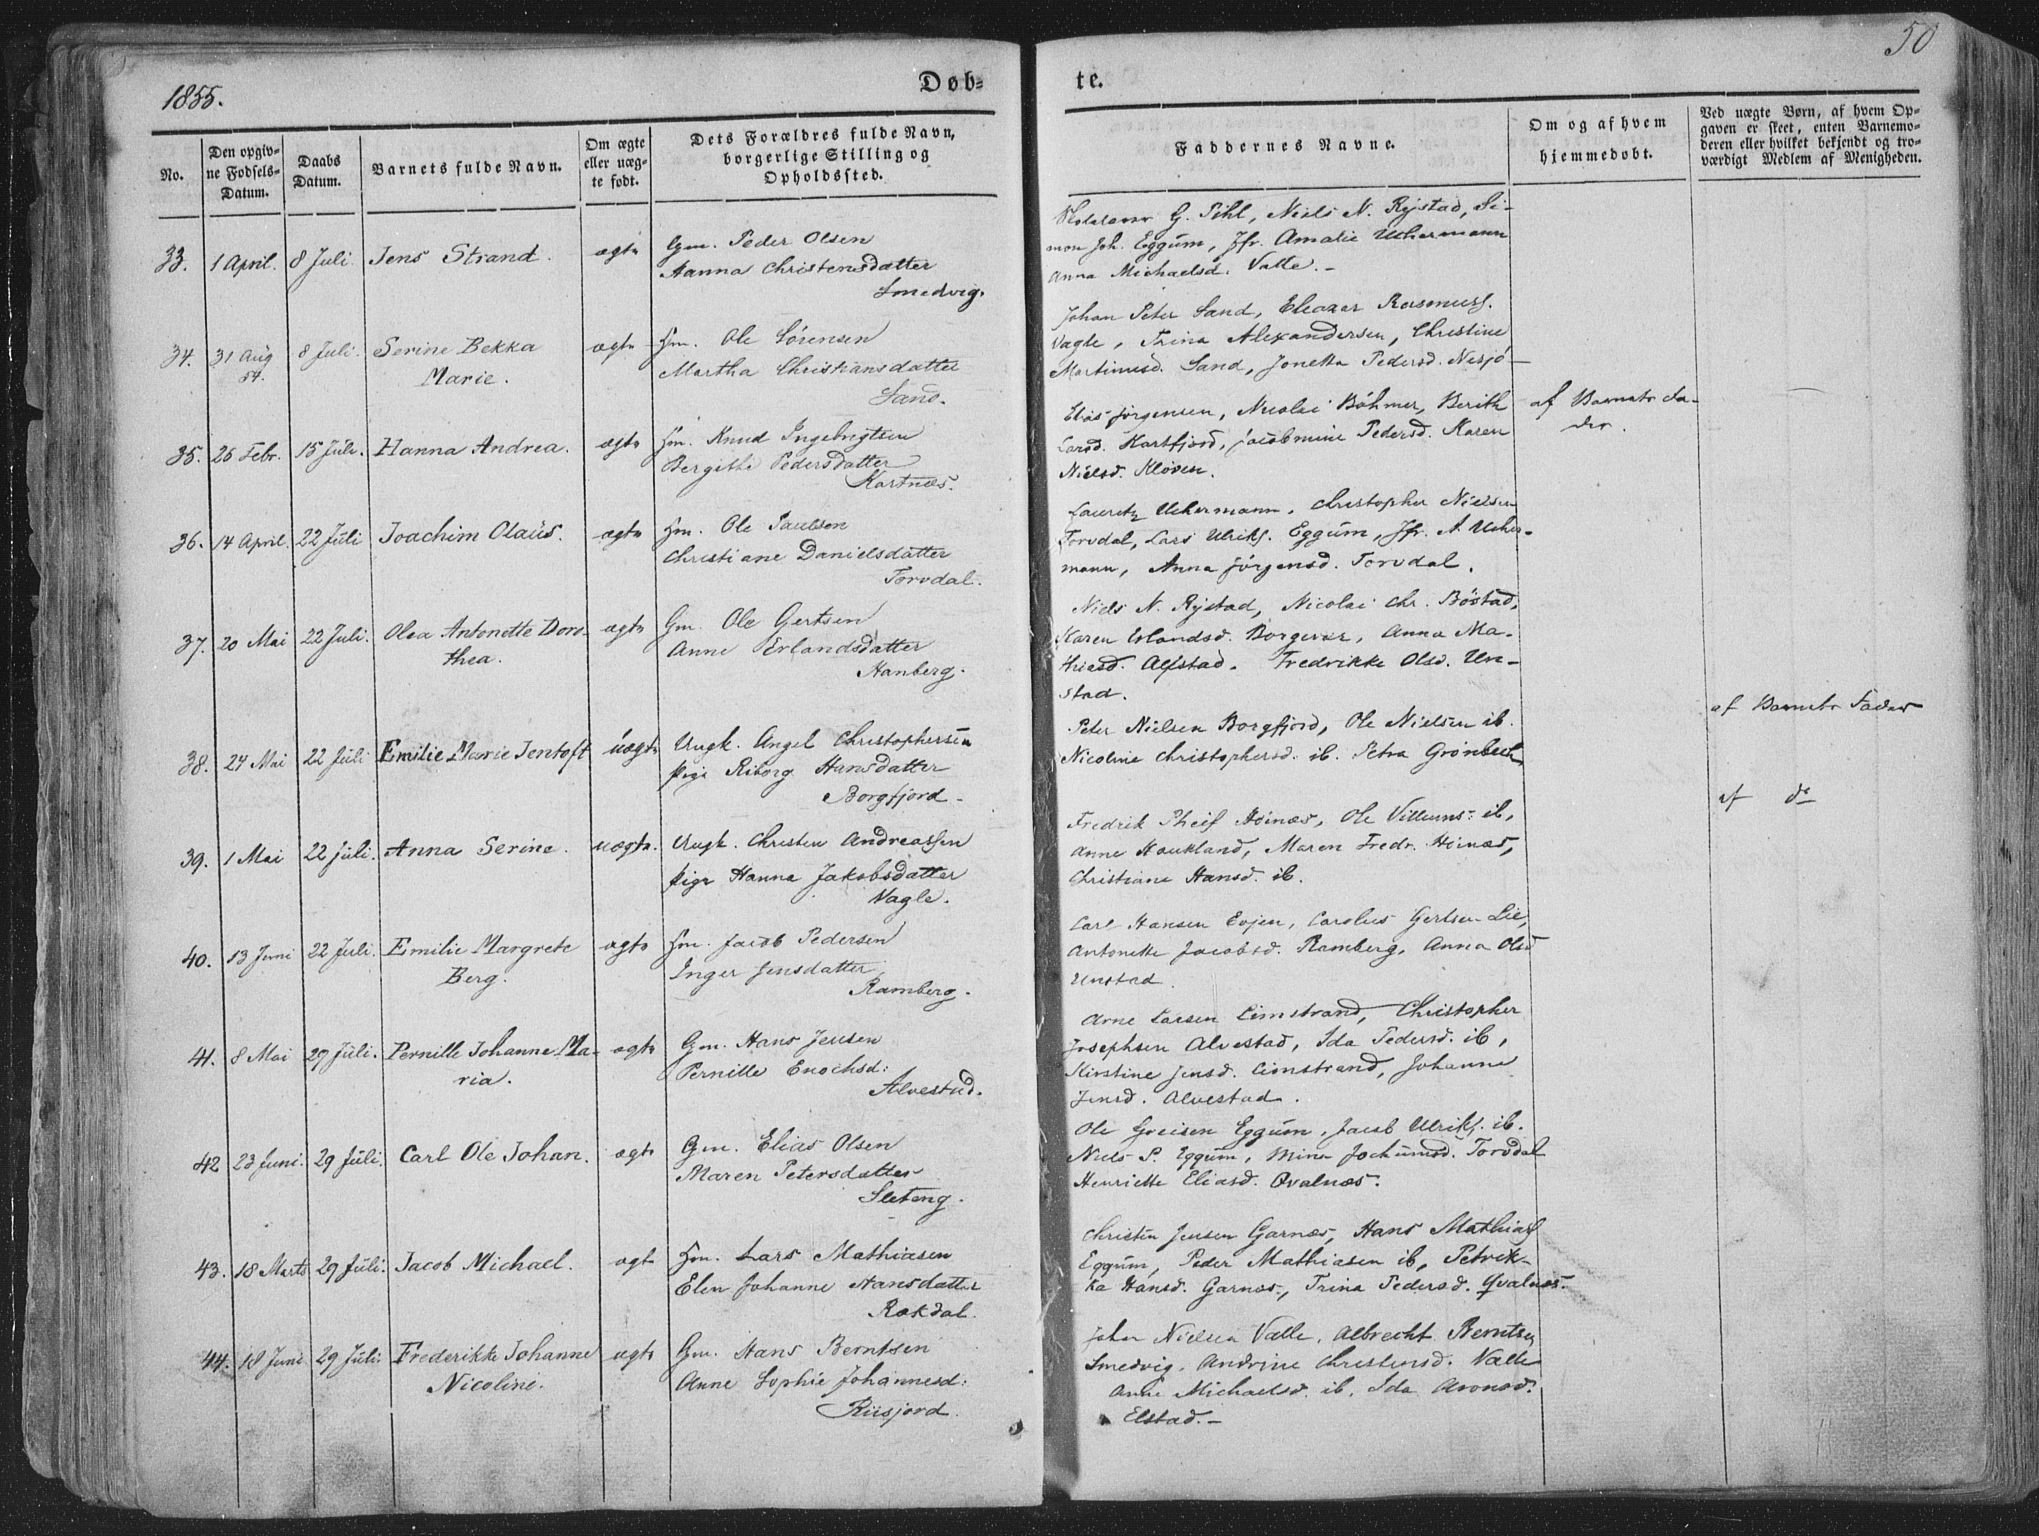 1855.
Døb-
te.
50
No.
Den opgiv-
ne Fødsels-
Datum.
Daabs
Datum.
Barnets fulde Navn.
Om ægte
eller uæg-
te født.
Dets Forældres fulde Navn,
borgerlige Stilling og
Opholdssted.
Faddernes Navne.
Om og af hvem
hjemmedøbt.
Ved uægte Børn, af hvem Op-
gaven er skeet, enten Barnemo-
deren eller hvilket bekjendt og tro-
værdigt Medlem af Menigheden.
33. 1 April. 8 Juli. Jens Strand. ægte
Gm. Peder Olsen
Hanna Christensdatter
Smedvig.
G. Pihl, Niels N. Rystad, Si-
mon Joh. Eggum, Jfr. Amalie Uchermann
Anna Michaelsd. Valle.-
34. 31 Aug 54. 8 Juli. Serine Bekka
Marie. ægte
Hm. Ole Sørensen
Martha Christiansdatter
Sand.
Johan Peter Sand, Eleazar Rasmuss.
Vagle, Trina Alexandersen, Christine
Martinusd. Sand, Jonetta Pedersd. Nesjö-
35. 26 Febr. 15 Juli. Hanna Andrea. ægte
Hm. Knud Ingebrigtsen
Bergitte Pedersdatter
Kartnæs.
Elias Jörgensen, Nicolai Böhmer, Berith
Larsd. Kartfjord, Jacobmine Pedersd. Karen
Nielsd. Kløven.
af Barnets Fa-
der.
36. 14 April. 22 Juli Joachim Olaüs. ægte
Hm. Ole Paulsen
Christiane Danielsdatter
Torvdal.
Lauretz Uchermann, Christopher Nielsen
Torvdal, Lars Ulriks. Eggum, Jfr. A. Ucher-
mann, Anna Jörgensd. Torvdal.
37. 20 Mai 22 Juli. Olea Antonette Doro-
thea. ægte
Gm. Ole Gertsen
Anne Erlandsdatter
Hanberg.
Niels N. Rystad, Nicolai Chr. Böstad,
Karen Erlandsd. Borgevær, Anna Ma-
thiasd. Alstad. Fredrikke Olsd. Un-
stad.
38. 24 Mai 22 Juli Emilie Marie Jentoft uægte
Ungk. Angel Christophersen
Pige Riborg Hansdatter
Borgfjord-
Peter Nielsen Borgfjord, Ole Nielsen ib.
Nicoline Christophersd. ib. Petra Grönbech
af Barnets Fader
39. 1 Mai 22 Juli. Anna Serine. uægte.
Ungk. Christen Andreassen
Pige Hanna Jakobsdatter
Vagle.
Fredrik Pheif Höinæs, Ole Villums- ib,
Anne Haukland, Maren Fredr. Höinæs,
Christiane Hansd. ib.
af do
40. 13 Juni 22 Juli. Emilie Margrete
Berg. ægte
Hm. Jacob Pedersen
Inger Jensdatter
Ramberg.
Carl Hansen Evjen, Carolus Gertsen Lie,
Antonette Jacobsd. Ramberg, Anna Olsd
Unstad.
41. 8 Mai 29 Juli. Pernille Johanne Ma-
ria. ægte
Gm. Hans Jensen
Pernille Enochsd:
Alvestad.
Arne Larsen Limstrand, Christopher
Josephsen Alvestad, Ida Pedersd. ib,
Kirstine Jensd. Limstrand, Johanne
Jensd. Alvestad.
42 23 Juni. 29 Juli. Carl Ole Johan. ægte
Gm. Elias Olsen
Maren Petersdatter
Sleteng.
Ole Greisen Eggum, Jacob Ulriks. ib.
Niels P. Eggum, Mina Jochumsd. Torvdal
Henriette Eliasd. Qvalnæs.
43. 18 Marts 29 Juli. Jacob Michael. ægte
Hm. Lars Mathiasen
Elen Johanne Hansdatter
Rækdal.
Christen Jensen Garnæs, Hans Mathias
Eggum, Peder Mathiasen ib, Petrik-
ka Hansd. Garnæs, Trina Pedersd. Qvalnæs.
44. 18 Juni 29 Juli. Frederikke Johanne
Nicoline. ægte
Gm. Hans Berntsen
Anne Sophie Johannesd:
Riisjord.
Johan Nielsen Valle, Albrecht Berntsen
Smedvig. Andrine Christensd. Valle
Anne Michaelsd. ib. Ida Aronsd.
Elstad.-